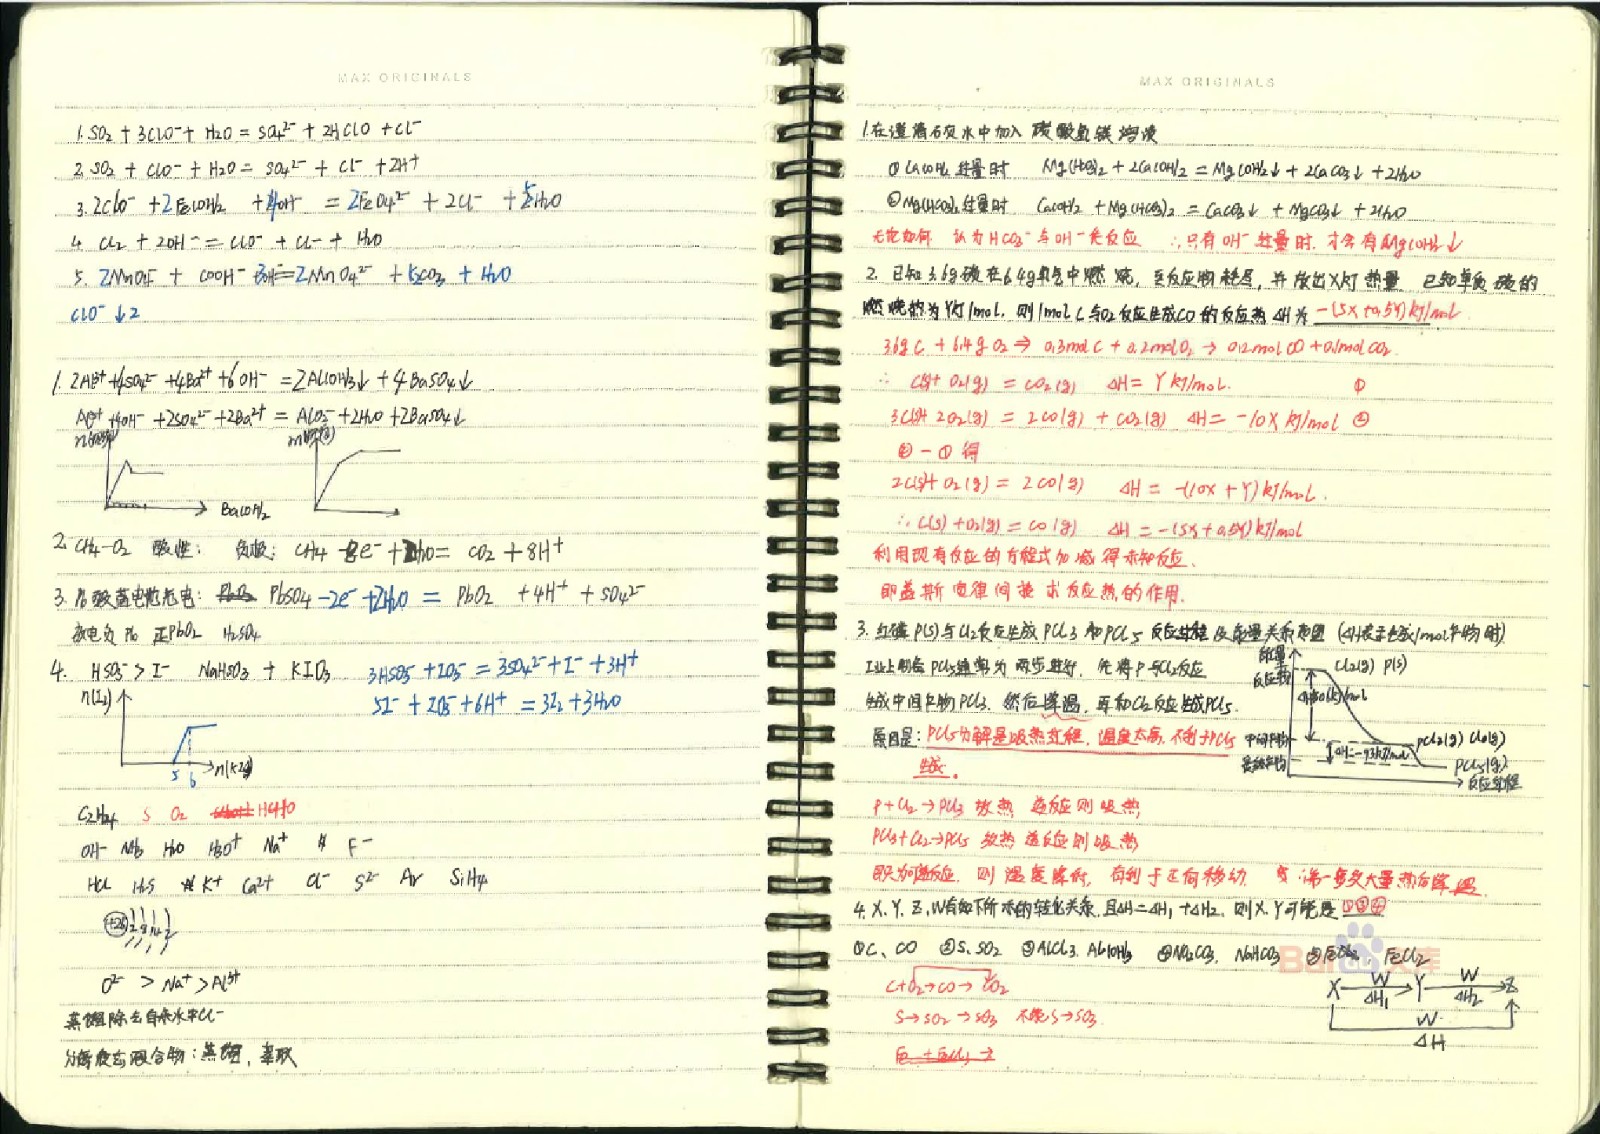 MAX ORIGINALS
1. SO₂ + 3ClO⁻ + H₂O = SO₄²⁻ + 2HClO + Cl⁻
2. SO₂ + ClO⁻ + H₂O = SO₄²⁻ + Cl⁻ + 2H⁺
3. 2ClO⁻ + 2Fe(OH)₂ + 4OH⁻ = 2FeO₄²⁻ + 2Cl⁻ + 5H₂O
4. Cl₂ + 2OH⁻ = ClO⁻ + Cl⁻ + H₂O
5. 2MnO₄⁻ + COOH⁻ 3H = 2MnO₄²⁻ + CO₃ + H₂O
ClO⁻ ↓2
1. 2Al³⁺ + 4SO₄²⁻ + 4Ba²⁺ + 6OH⁻ = 2Al(OH)₃↓ + 4BaSO₄↓
Al³⁺ + 4OH⁻ + 2SO₄²⁻ + 2Ba²⁺ = AlO₂⁻ + 2H₂O + 2BaSO₄↓
Ba(OH)₂
2. CH₄-O₂ 酸性: 负极: CH₄ - 8e⁻ + 2H₂O = CO₂ + 8H⁺
3. 铅酸蓄电池充电: PbSO₄ - 2e⁻ + 2H₂O = PbO₂ + 4H⁺ + SO₄²⁻
放电负 Pb 正PbO₂ H₂SO₄
4. HSO₃⁻ > I⁻ NaHSO₃ + KIO₃ 3HSO₃⁻ + IO₃⁻ = 3SO₄²⁻ + I⁻ + 3H⁺
n(I₂) 5I⁻ + IO₃⁻ + 6H⁺ = 3I₂ + 3H₂O
5 6
C₂H₄ S O₂ HCHO
OH⁻ NH₃ H₂O H₃O⁺ Na⁺ F⁻
HCl H₂S K⁺ Ca²⁺ Cl⁻ S²⁻ Ar SiH₄
+26 2 8 14 2
O²⁻ > Na⁺ > Al³⁺
蒸馏除去自来水中Cl⁻
分离液态混合物: 蒸馏, 萃取
MAX ORIGINALS
1. 在澄清石灰水中加入 碳酸氢镁溶液
① Ca(OH)₂ 过量时 Mg(HCO₃)₂ + 2Ca(OH)₂ = Mg(OH)₂↓ + 2CaCO₃↓ + 2H₂O
② Mg(HCO₃)₂ 过量时 Ca(OH)₂ + Mg(HCO₃)₂ = CaCO₃↓ + MgCO₃↓ + 2H₂O
无论如何 认为HCO₃⁻与OH⁻先反应 ∴只有OH⁻过量时, 才会有Mg(OH)₂↓
2. 已知3.6g碳在6.4g氧气中燃烧, 至反应物耗尽, 并放出XkJ热量. 已知单质碳的
燃烧热为YkJ/mol, 则1mol C与O₂反应生成CO的反应热ΔH为 -(5X+0.5Y)kJ/mol
3.6g C + 6.4g O₂ ⇒ 0.3mol C + 0.2mol O₂ → 0.2mol CO + 0.1mol CO₂.
∴ C(s) + O₂(g) = CO₂(g) ΔH = Y kJ/mol. ①
3C(s) + 2O₂(g) = 2CO(g) + CO₂(g) ΔH = -10X kJ/mol ②
② - ① 得
2C(s) + O₂(g) = 2CO(g) ΔH = -(10X + Y) kJ/mol.
∴ C(s) + O₂(g) = CO(g) ΔH = -(5X + 0.5Y) kJ/mol
利用现有反应的方程式加减得未知反应.
即盖斯定律间接求反应热的作用.
3. 红磷P(s)与Cl₂反应生成PCl₃和PCl₅ 反应过程及能量关系如图 (ΔH表示生成1mol产物时)
工业上制备PCl₅通常分两步进行, 先将P与Cl₂反应
生成中间产物PCl₃, 然后降温, 再和Cl₂反应生成PCl₅.
原因是: PCl₅分解是吸热过程, 温度太高, 不利于PCl₅
生成.
能量
反应物
Cl₂(g) P(s)
中间产物
PCl₃(g) Cl₂(g)
ΔH=-93kJ/mol
最终产物
PCl₅(g)
反应过程
P + Cl₂ → PCl₃ 放热 逆反应则吸热
PCl₃ + Cl₂ → PCl₅ 放热 逆反应则吸热
则温度降低, 有利于正向移动
4. X、Y、Z、W有如下所示的转化关系, 且ΔH=ΔH₁+ΔH₂, 则X、Y可能是 ①③④
①C、CO ②S、SO₂ ③AlCl₃、Al(OH)₃ ④Na₂CO₃、NaHCO₃ ⑤ FeCl₂
Bai 文库
C+O₂→CO→CO₂
S→SO₂→SO₃ 不能S→SO₃
X W ΔH₁ Y W ΔH₂ Z
W
ΔH